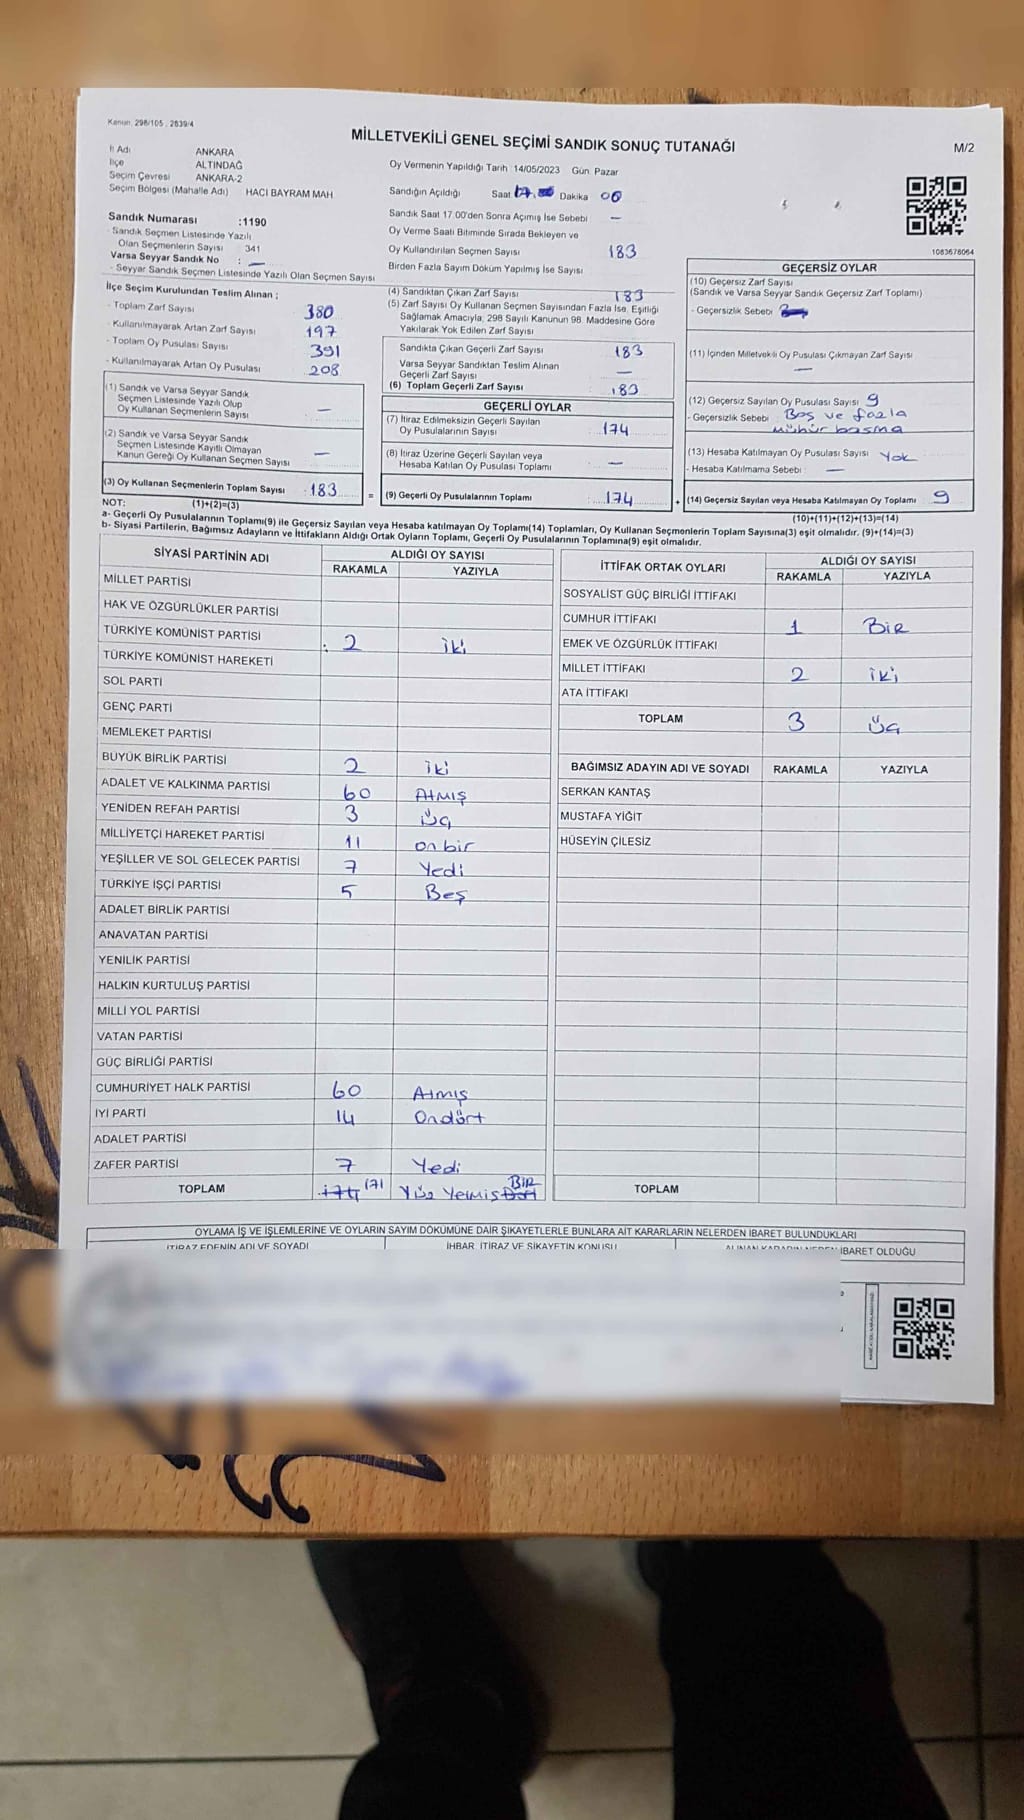 Kanun, 298/105, 2839/4
MİLLETVEKİLİ GENEL SEÇİMİ SANDIK SONUÇ TUTANAĞI
M/2
İl Adı ANKARA
İlçe ALTINDAĞ
Seçim Çevresi ANKARA-2
Seçim Bölgesi (Mahalle Adı) HACI BAYRAM MAH
Sandık Numarası :1190
Sandık Seçmen Listesinde Yazılı
Olan Seçmenlerin Sayısı : 341
Varsa Seyyar Sandık No : —
- Seyyar Sandık Seçmen Listesinde Yazılı Olan Seçmen Sayısı
İlçe Seçim Kurulundan Teslim Alınan ;
- Toplam Zarf Sayısı 380
- Kullanılmayarak Artan Zarf Sayısı 197
- Toplam Oy Pusulası Sayısı 391
- Kullanılmayarak Artan Oy Pusulası 208
(1) Sandık ve Varsa Seyyar Sandık
Seçmen Listesinde Yazılı Olup
Oy Kullanan Seçmenlerin Sayısı —
(2) Sandık ve Varsa Seyyar Sandık
Seçmen Listesinde Kayıtlı Olmayan
Kanun Gereği Oy Kullanan Seçmen Sayısı —
(3) Oy Kullanan Seçmenlerin Toplam Sayısı 183
(1)+(2)=(3)
Oy Vermenin Yapıldığı Tarih 14/05/2023 Gün. Pazar
Sandığın Açıldığı Saat 17 Dakika 00
Sandık Saat 17 00'den Sonra Açımış İse Sebebi —
Oy Verme Saati Bitiminde Sırada Bekleyen ve
Oy Kullandırılan Seçmen Sayısı 183
Birden Fazla Sayım Döküm Yapılmış İse Sayısı
(4) Sandıktan Çıkan Zarf Sayısı 183
(5) Zarf Sayısı Oy Kullanan Seçmen Sayısından Fazla İse, Eşitliği
Sağlamak Amacıyla, 298 Sayılı Kanunun 98. Maddesine Göre
Yakılarak Yok Edilen Zarf Sayısı
Sandıkta Çıkan Geçerli Zarf Sayısı 183
Varsa Seyyar Sandıktan Teslim Alınan
Geçerli Zarf Sayısı —
(6) Toplam Geçerli Zarf Sayısı 183
GEÇERLİ OYLAR
(7) İtiraz Edilmeksizin Geçerli Sayılan
Oy Pusulalarının Sayısı 174
(8) İtiraz Üzerine Geçerli Sayılan veya
Hesaba Katılan Oy Pusulası Toplamı —
= (9) Geçerli Oy Pusulalarının Toplamı : 174 +
1083678064
GEÇERSİZ OYLAR
(10) Geçersiz Zarf Sayısı
(Sandık ve Varsa Seyyar Sandık Geçersiz Zarf Toplamı)
- Geçersizlik Sebebi
(11) İçinden Milletvekili Oy Pusulası Çıkmayan Zarf Sayısı
—
(12) Geçersiz Sayılan Oy Pusulası Sayısı 9
- Geçersizlik Sebebi Boş ve fazla
mühür basma
(13) Hesaba Katılmayan Oy Pusulası Sayısı Yok
- Hesaba Katılmama Sebebi : —
(14) Geçersiz Sayılan veya Hesaba Katılmayan Oy Toplamı 9
(10)+(11)+(12)+(13)=(14)
NOT:
a- Geçerli Oy Pusulalarının Toplamı(9) ile Geçersiz Sayılan veya Hesaba katılmayan Oy Toplamı(14) Toplamları, Oy Kullanan Seçmenlerin Toplam Sayısına(3) eşit olmalıdır. (9)+(14)=(3)
b- Siyasi Partilerin, Bağımsız Adayların ve İttifakların Aldığı Ortak Oyların Toplamı, Geçerli Oy Pusulalarının Toplamına(9) eşit olmalıdır.
SİYASİ PARTİNİN ADI ALDIĞI OY SAYISI
RAKAMLA YAZIYLA
MİLLET PARTİSİ
HAK VE ÖZGÜRLÜKLER PARTİSİ
TÜRKİYE KOMÜNİST PARTİSİ 2 iki
TÜRKİYE KOMÜNİST HAREKETİ
SOL PARTİ
GENÇ PARTİ
MEMLEKET PARTİSİ
BÜYÜK BİRLİK PARTİSİ 2 iki
ADALET VE KALKINMA PARTİSİ 60 Atmış
YENİDEN REFAH PARTİSİ 3 üç
MİLLİYETÇİ HAREKET PARTİSİ 11 onbir
YEŞİLLER VE SOL GELECEK PARTİSİ 7 Yedi
TÜRKİYE İŞÇİ PARTİSİ 5 Beş
ADALET BİRLİK PARTİSİ
ANAVATAN PARTİSİ
YENİLİK PARTİSİ
HALKIN KURTULUŞ PARTİSİ
MİLLİ YOL PARTİSİ
VATAN PARTİSİ
GÜÇ BİRLİĞİ PARTİSİ
CUMHURİYET HALK PARTİSİ 60 Atmış
İYİ PARTİ 14 Ondört
ADALET PARTİSİ
ZAFER PARTİSİ 7 Yedi
TOPLAM 174 171 Yüz Yetmiş Dört BİR
İTTİFAK ORTAK OYLARI ALDIĞI OY SAYISI
RAKAMLA YAZIYLA
SOSYALİST GÜÇ BİRLİĞİ İTTİFAKI
CUMHUR İTTİFAKI 1 Bir
EMEK VE ÖZGÜRLÜK İTTİFAKI
MİLLET İTTİFAKI 2 iki
ATA İTTİFAKI
TOPLAM 3 üç
BAĞIMSIZ ADAYIN ADI VE SOYADI RAKAMLA YAZIYLA
SERKAN KANTAŞ
MUSTAFA YİĞİT
HÜSEYİN ÇİLESİZ
TOPLAM
OYLAMA İŞ VE İŞLEMLERİNE VE OYLARIN SAYIM DÖKÜMÜNE DAİR ŞİKAYETLERLE BUNLARA AİT KARARLARIN NELERDEN İBARET BULUNDUKLARI
İTİRAZ EDENİN ADI VE SOYADI İHBAR, İTİRAZ VE ŞİKAYETİN KONUSU ALINAN KARARIN NEDEN İBARET OLDUĞU